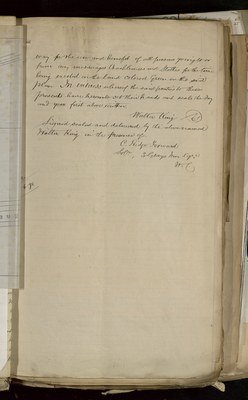 way for the use and benefit of all persons going to or
from any messuages Tenements and
being erected on the land colored Green on the said
plan In witness whereof the said parties to these
presents have hereunto set their hands and seals the day
and year first above written
Walter King
Signed sealed and delivered by the above named
Walter King in the presence of